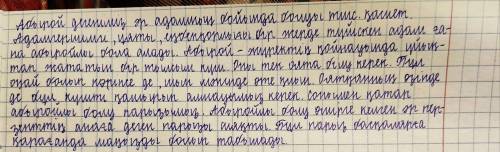 Абырой дегеніміз әр адамның бойында болуы тиіс қасиет
Адамгершілігі, ұяты, ізденгіштігі бір жерде түйіскен адам ға-
на абыройлы бола алады. Абырой - жүректің қойнауында ұйық-
тап жататын бір тылсым күш. Оны тек оята білу керек. Бұл
оңай болып көрінсе де, шын мәнінде өте қиын. Оятқанның өзінде
де бұл күшті қамырып алмауымыз керек. Сонымен қатар
абыройлы болу парызымыз. Абыройлы болу өмірге келген әр пер-
зенттің анаға деген парызы сияқты. Бұл парыз басқаларға
қарағанда маңызды болып табылады.